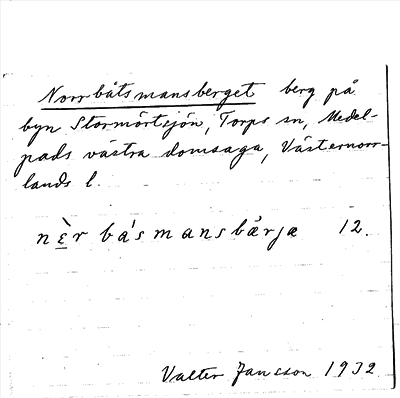 Norrbåtsmansberget berg på
byn Stormörtsjön, Torps sn, Medel-
pads västra domsaga, Västernorr-
lands l.
nèr båsmansbärja 12.
Valter Jansson 1932